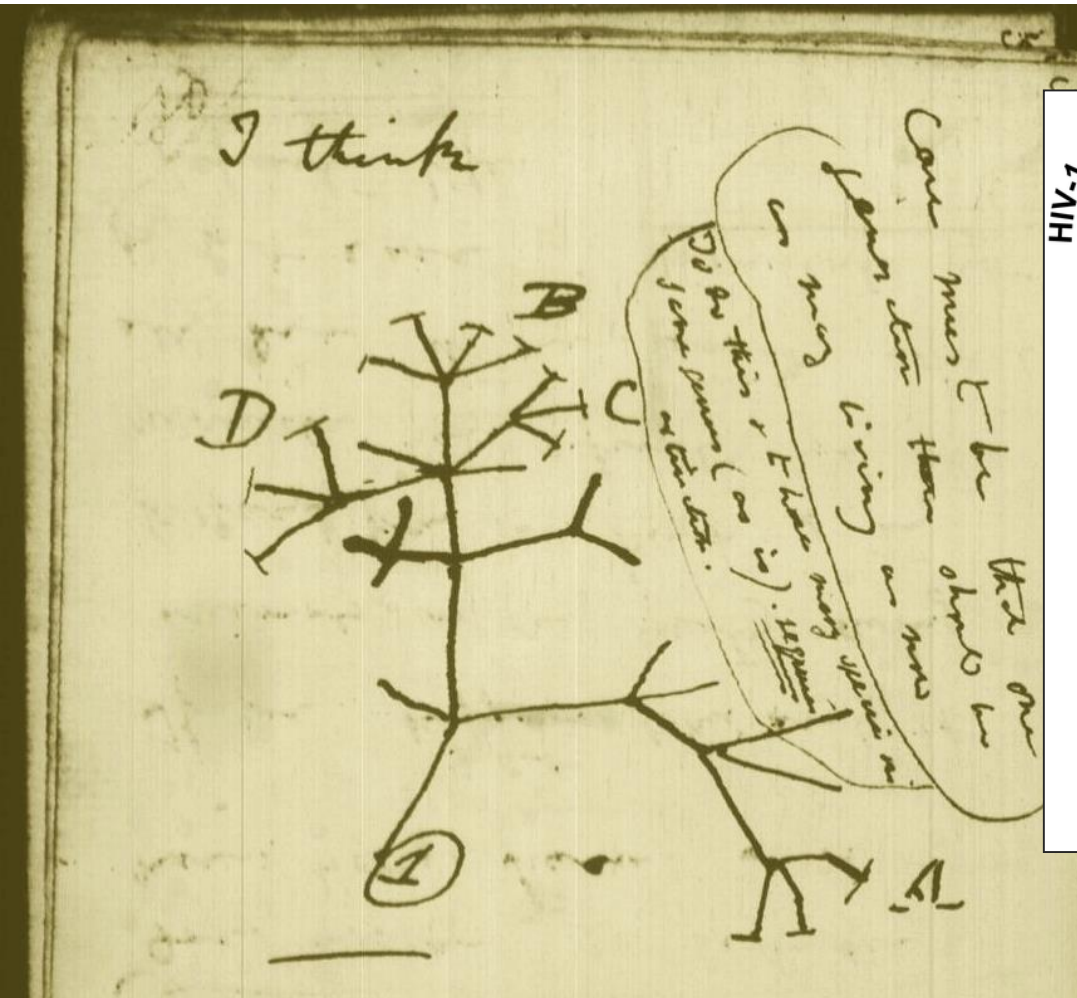 I think
Case must be that one
generation then should be
as many living as now
To do this & to have many species in
same genus (as is). requires
extinction.
B
D
C
A
1
HIV-1